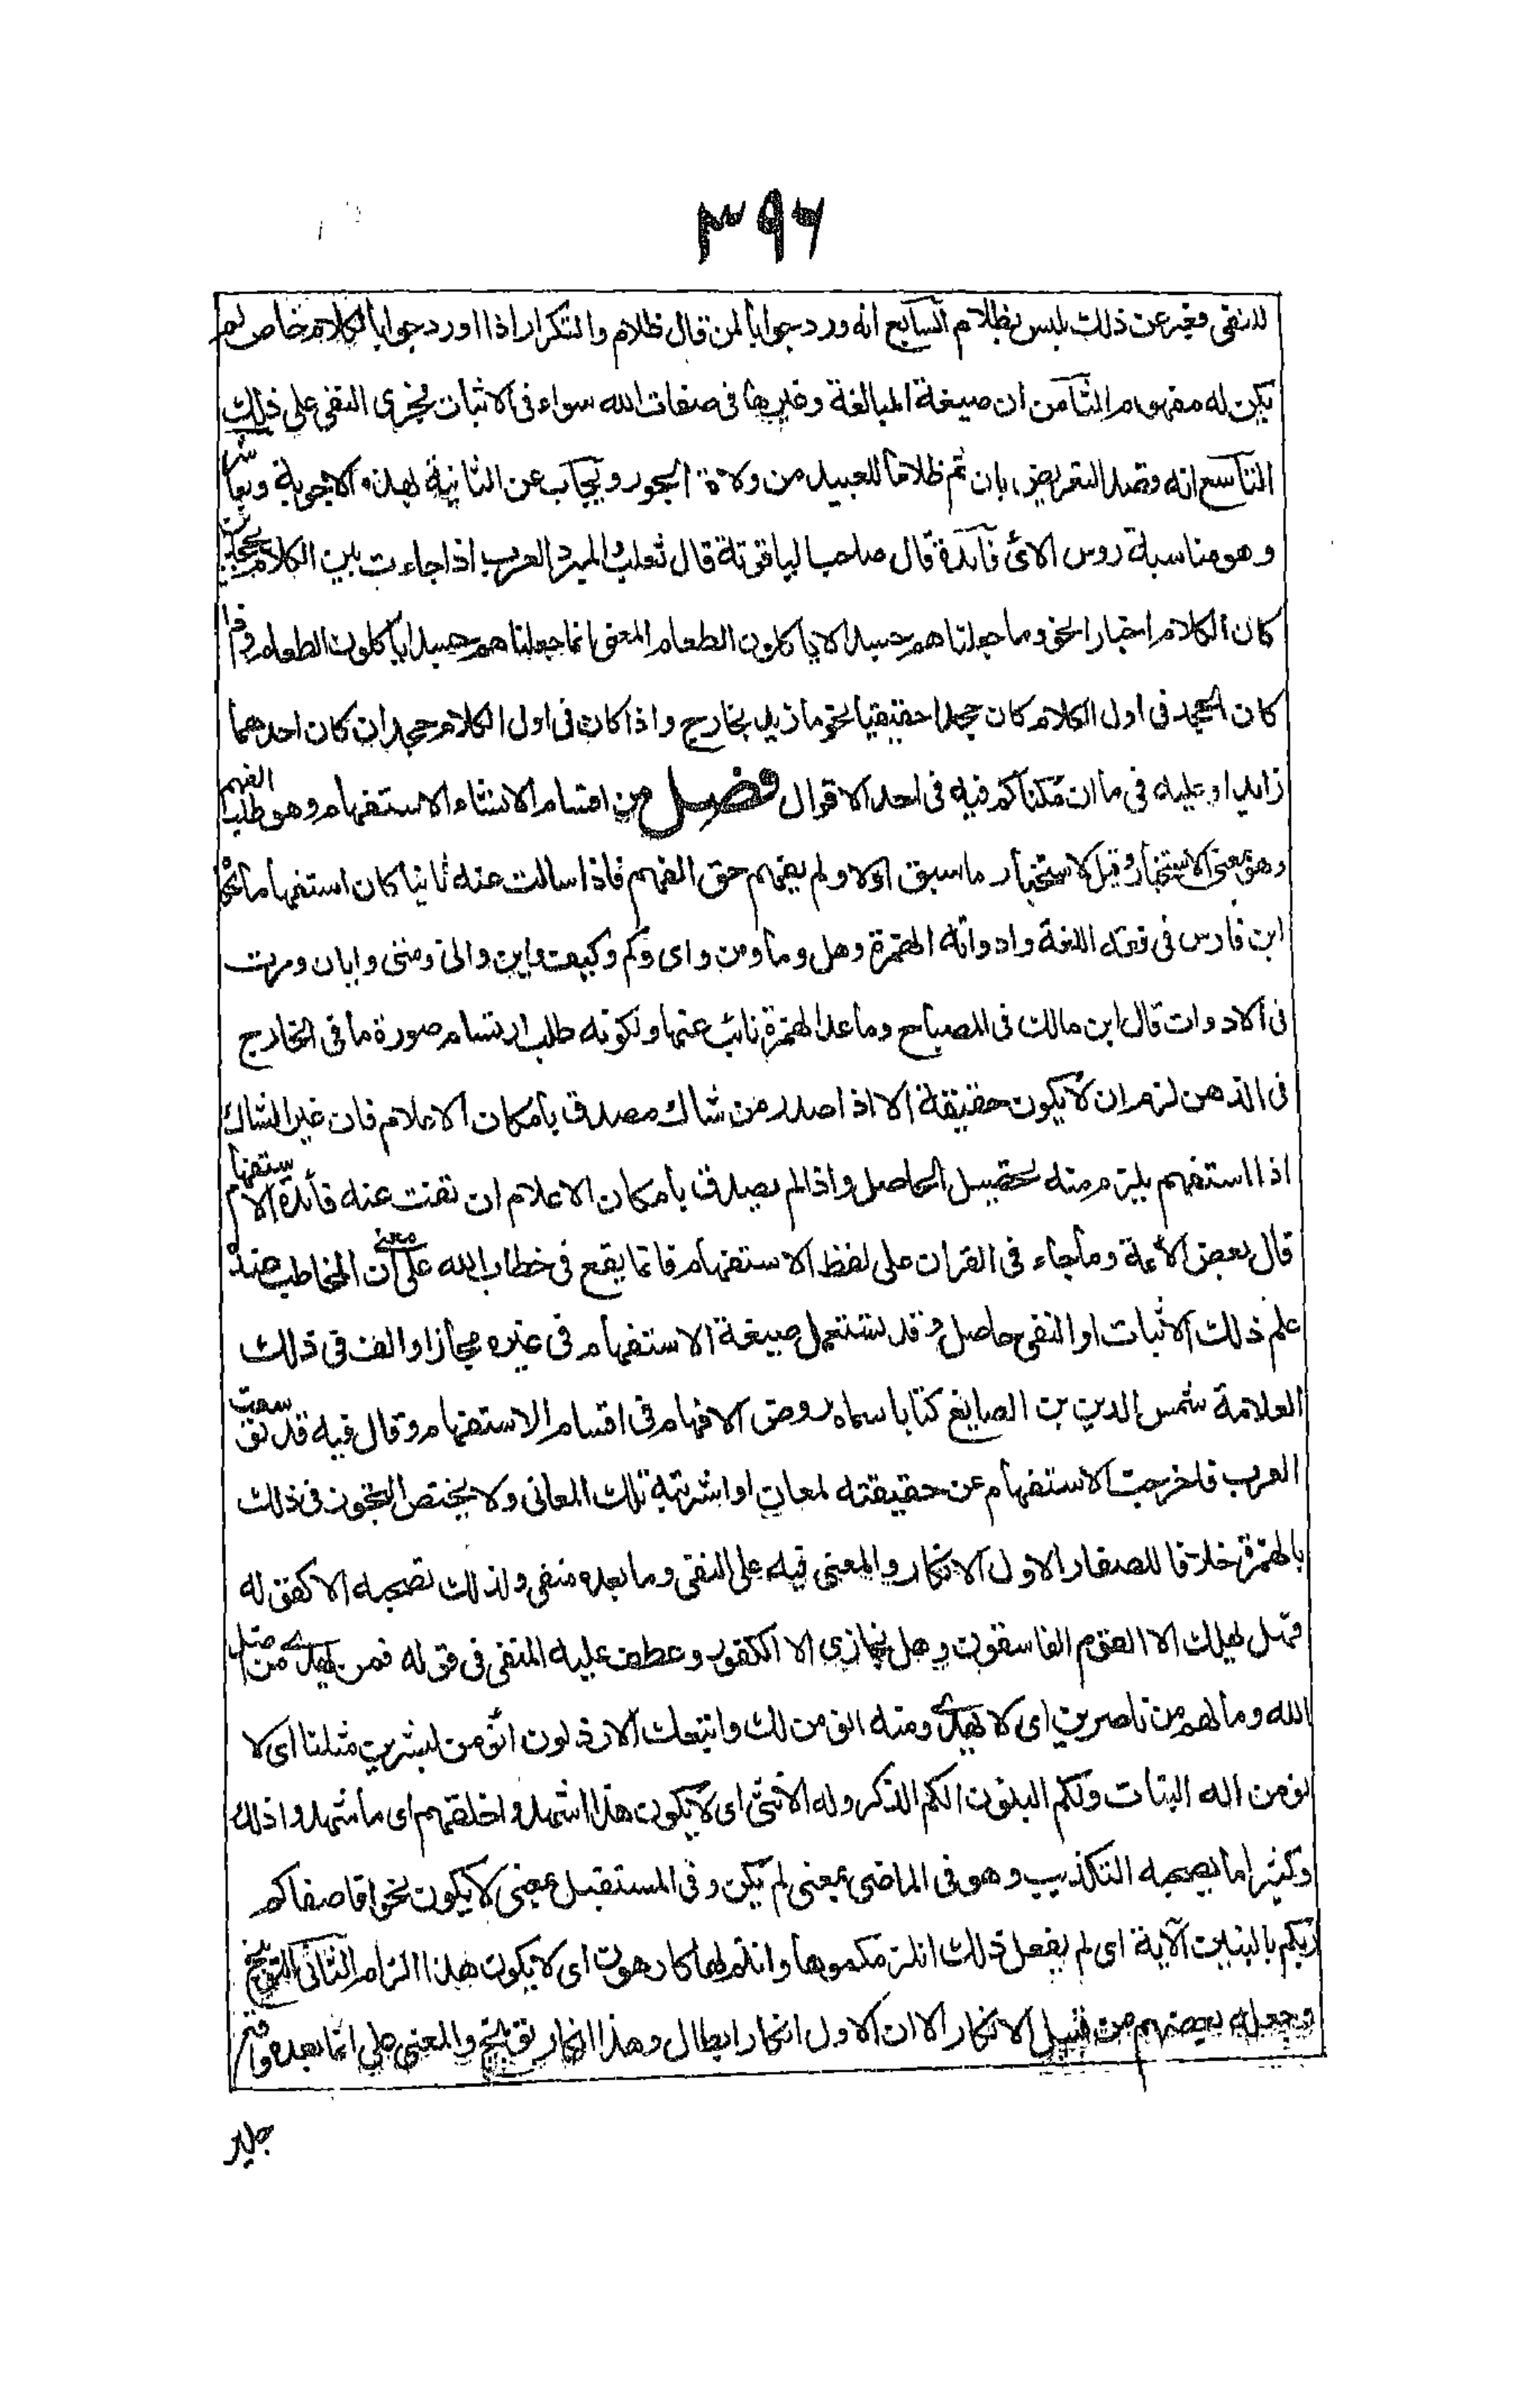 ٣٩٦
للنفى فعبر عن ذلك بليس بظلام السابع انه ورد جوابا لمن قال ظلام والتكرار اذا اورد جوابا لكلام خاص لم
يكن له مفهوم الثامن ان صيغة المبالغة وغيرها فى صفات الله سواء فى الاثبات فجرى النفى على ذلك
التاسع انه قصد التعريض بان ثم ظلاما للعبيد من ولاة الجور ويجاب عن الثانية بهذه الاجوبة وبعاشر
وهو مناسبة روس الاى فائدة قال صاحب الياقوتة قال ثعلب والمبرد العرب اذا جاءت بين الكلام بجحدين
كان الكلام اخبارا نحو وما جعلناهم جسدا لا ياكلون الطعام المعنى انما جعلناهم جسدا ياكلون الطعام واذا
كان الجحد فى اول الكلام كان جحدا حقيقيا نحو ما زيد بخارج واذا كان فى اول الكلام جحدان كان احدهما
زايدا وعليه فى ما ان مكناكم فيه فى احد الاقوال فصل من اقسام الانشاء الاستفهام وهو طلب الفهم
وهو بمعنى الاستخبار وقيل الاستخبار ما سبق اولا ولم يفهم حق الفهم فاذا سالت عنه ثانيا كان استفهاما حكاه
ابن فارس فى فقه اللغة وادواته الهمزة وهل وما ومن واى وكم وكيف واين وانى ومتى وايان ومرت
فى الادوات قال ابن مالك فى المصباح وما عدا الهمزة نائب عنها ولكونه طلب ارتسام صورة ما فى الخارج
فى الذهن لزم ان لا يكون حقيقة الا اذا صدر من شاك مصدق بامكان الاعلام فان غير الشاك
اذا استفهم يلزم منه تحصيل الحاصل واذا لم يصدق بامكان الاعلام انتفت عنه فائدة الاستفهام
قال بعض الائمة وما جاء فى القران على لفظ الاستفهام فانما يقع فى خطاب الله على معنى ان المخاطب عنده
علم ذلك الاثبات او النفى حاصل وقد تستعمل صيغة الاستفهام فى غيره مجازا والف فى ذلك
العلامة شمس الدين بن الصايغ كتابا سماه روض الافهام فى اقسام الاستفهام وقال فيه قد توسعت
العرب فاخرجت الاستفهام عن حقيقته لمعان او اشربته تلك المعانى ولا يختص التجوز فى ذلك
بالهمزة خلافا للصفار الاول الانكار والمعنى فيه على النفى وما بعده منفى ولذلك تصحبه الا كقوله
فهل يهلك الا القوم الفاسقون وهل نجازى الا الكفور وعطف عليه المنفى فى قوله فمن يهدى من اضل
الله وما لهم من ناصرين اى لا يهدى ومنه انؤمن لك واتبعك الارذلون انؤمن لبشرين مثلنا اى لا
نؤمن اله البنات ولكم البنون الكم الذكر وله الانثى اى لا يكون هذا اشهدوا خلقهم اى ما شهدوا ذلك
وكثيرا ما يصحبه التكذيب وهو فى الماضى بمعنى لم يكن وفى المستقبل بمعنى لا يكون نحو افاصفاكم
ربكم بالبنين الآية اى لم يفعل ذلك انلزمكموها وانتم لها كارهون اى لا يكون هذا الالزام الثانى التوبيخ
وجعله بعضهم من قبيل الانكار الا ان الاول انكار ابطال وهذا انكار توبيخ والمعنى على ان ما بعده واقع
جدير